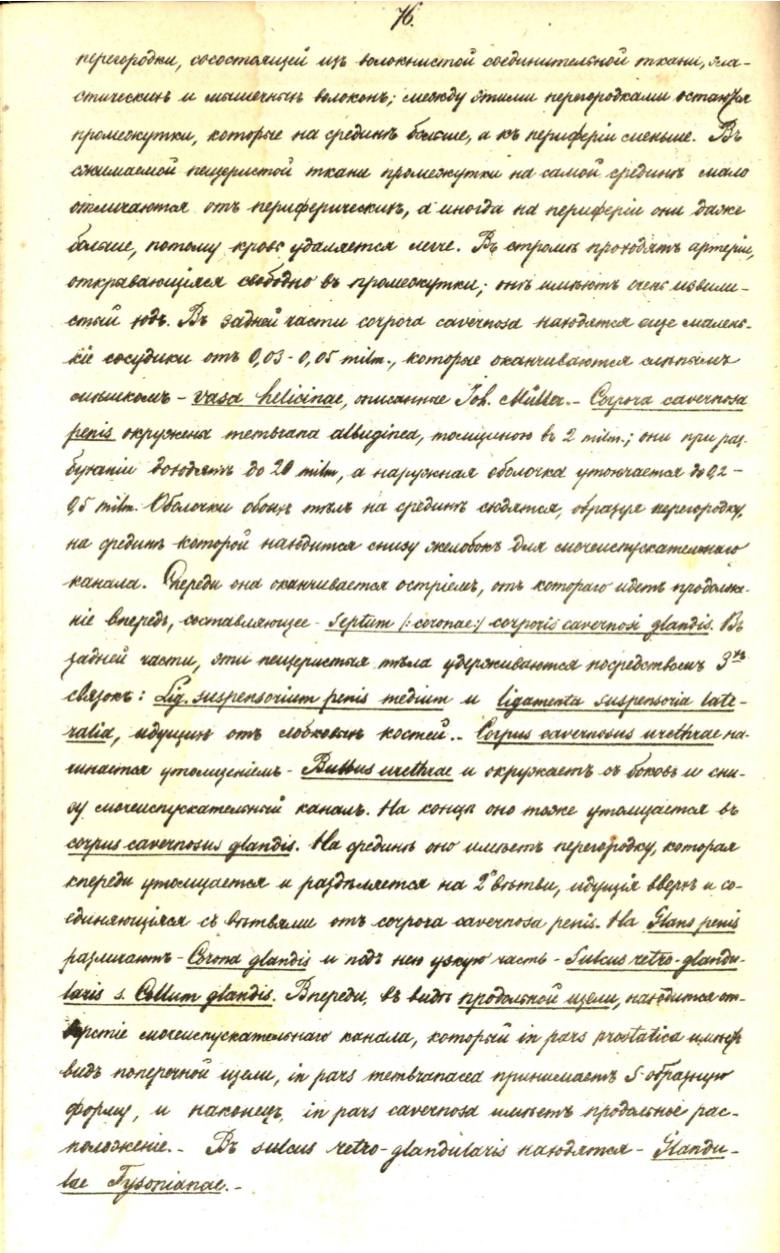 76.
перегородки, сосостоящей изъ волокнистой соединительной ткани, эла-
стическихъ и мышечныхъ волоконъ; между этими перегородками остаются
промежутки, которые на срединѣ больше, а къ периферіи меньше. Въ
сжимаемой пещеристой ткани промежутки на самой срединѣ мало
отличаются отъ периферическихъ, а иногда на периферіи они даже
больше, потому кровь удаляется легче. Въ стромѣ проходятъ артеріи,
открывающіяся свободно въ промежутки; онѣ имѣютъ очень извили-
стый ходъ. Въ задней части corpora cavernosa находятся еще малень-
кіе сосудики отъ 0,03-0,05 milm., которые оканчиваются слѣпымъ
мѣшкомъ - vasa helicinae, описанные Joh. Müller. - Corpora cavernosa
penis окружена membrana albuginea, толщиною въ 2 milm.; они при раз-
буханіи доходятъ до 20 milm, а наружная оболочка утончается до 0,2-
0,5 milm. Оболочки обоихъ тѣлъ на срединѣ сходятся, образуя перегородку,
на срединѣ которой находится снизу желобокъ для мочеиспускательнаго
канала. Спереди она оканчивается остріемъ, отъ котораго идетъ продолже-
ніе впередъ, составляющее - septum /:coronae:/ corporis cavernosi glandis. Въ
задней части, эти пещеристыя тѣла удерживаются посредствомъ 3хъ
связокъ: Lig. suspensorium penis medium и ligamenta suspensoria late-
ralia, идущихъ отъ лобковыхъ костей. - Corpus cavernosus urethrae на-
чинается утолщеніемъ - Bulbus urethrae и окружаетъ съ боковъ и сни-
зу мочеиспускательный каналъ. На концѣ оно тоже утолщается въ
corpus cavernosus glandis. На срединѣ оно имѣетъ перегородку, которая
кпереди утолщается и раздѣляется на 2 вѣтви, идущія вверхъ и со-
единяющіяся съ вѣтвями отъ corpora cavernosa penis. На Glans penis
различаютъ - Corona glandis и подъ нею узкую часть - Sulcus retro-glandu-
laris s. Collum glandis. Впереди, въ видѣ продольной щели, находится от-
верстіе мочеиспускательнаго канала, который in pars prostatica имѣетъ
видъ поперечной щели, in pars membranacea принимаетъ S-образную
форму, и наконецъ, in pars cavernosa имѣетъ продольное рас-
положеніе. - Въ sulcus retro-glandularis находятся - Glandu-
lae Tysonianae. -